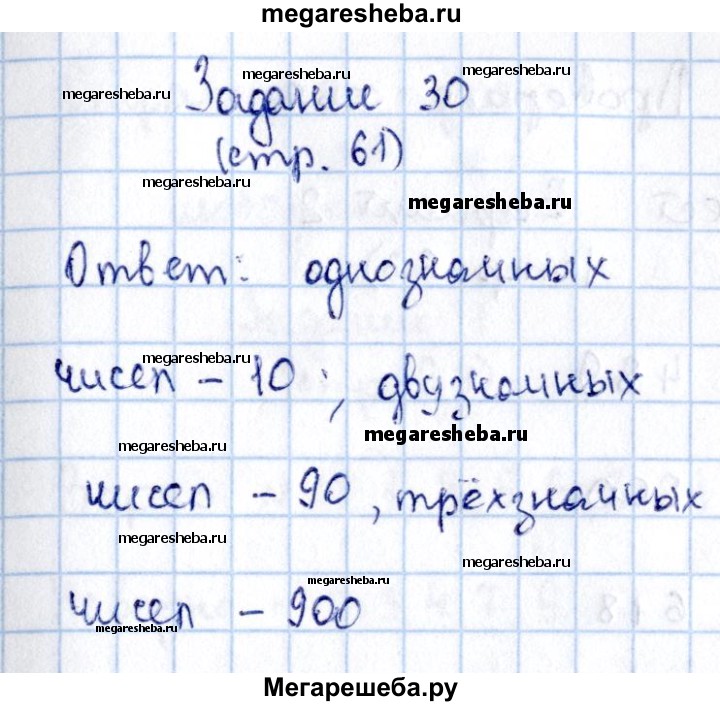 megaresheba.ru
megaresheba.ru
megaresheba.ru
megaresheba.ru
Задание 30
(стр. 61)
megaresheba.ru
megaresheba.ru
Ответ: однозначных
megaresheba.ru
чисел – 10 ; двузначных
megaresheba.ru
megaresheba.ru
чисел – 90, трёхзначных
megaresheba.ru
megaresheba.ru
чисел – 900
megaresheba.ru
Мегарешеба.ру